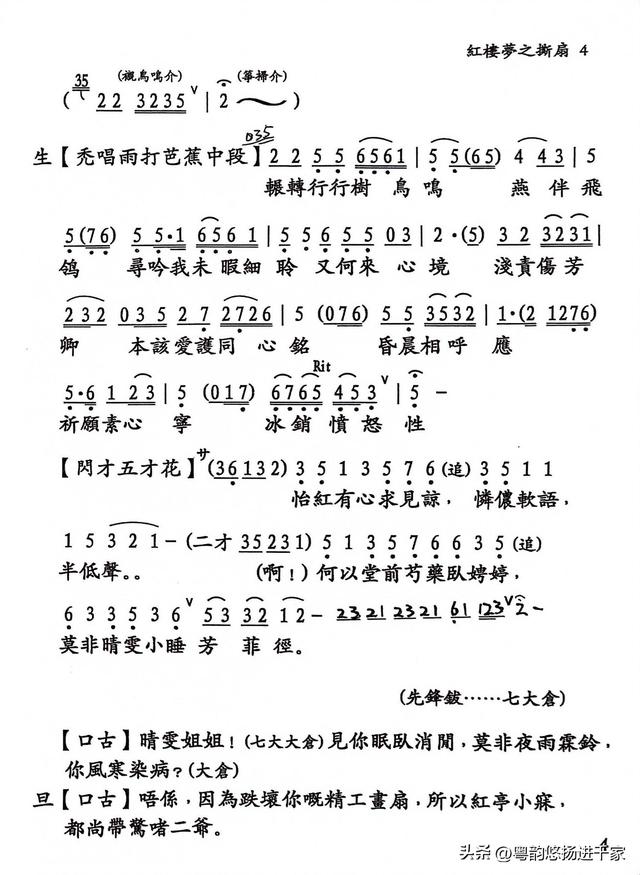 紅樓夢之撕扇 4
35 (襯鳥鳴介) (箏掃介)
( 22 3235 ˅ | 2
035
生【禿唱雨打芭蕉中段】2 2 5 5 6561 | 5 5 (65) 4 43 | 5
輾轉行行樹 鳥鳴 燕 伴飛
5 (76) 5 5·1 6561 | 5565 55 03 | 2·(5) 32 3231 |
鴿 尋吟我未 暇細 聆 又何來 心境 淺責傷芳
232 035 27 2726 | 5 (076) 55 3532 | 1·(2 1276)
卿 本該愛護同 心銘 昏晨相呼 應
Rit
5·6 1 23 | 5 (017) 6765 453 ˅ | 5 -
祈願素心 寧 冰銷 憤怒 性
【閃才五才花】サ(36132) 3 5 1 3 5 7 6 (追) 3 5 1 1
怡紅有心求見諒，憐儂軟語，
1 5 3 2 1 - (二才 35231) 5 1 3 5 7 6 6 3 5 (追)
半低聲。。 (啊！) 何以堂前芍藥臥娉婷，
6 3 3 5 3 6 ˅ 53 32 12 - 2321 2321 61 123 ˅ 2 -
莫非晴雯小睡 芳 菲 徑。
(先鋒鈸……七大倉)
【口古】晴雯姐姐！(七大大倉) 見你眠臥消閒，莫非夜雨霖鈴，
你風寒染病？(大倉)
旦【口古】唔係，因為跌壞你嘅精工畫扇，所以紅亭小寐，
都尚帶驚啫二爺。
4
头条 @粤韵悠扬进千家